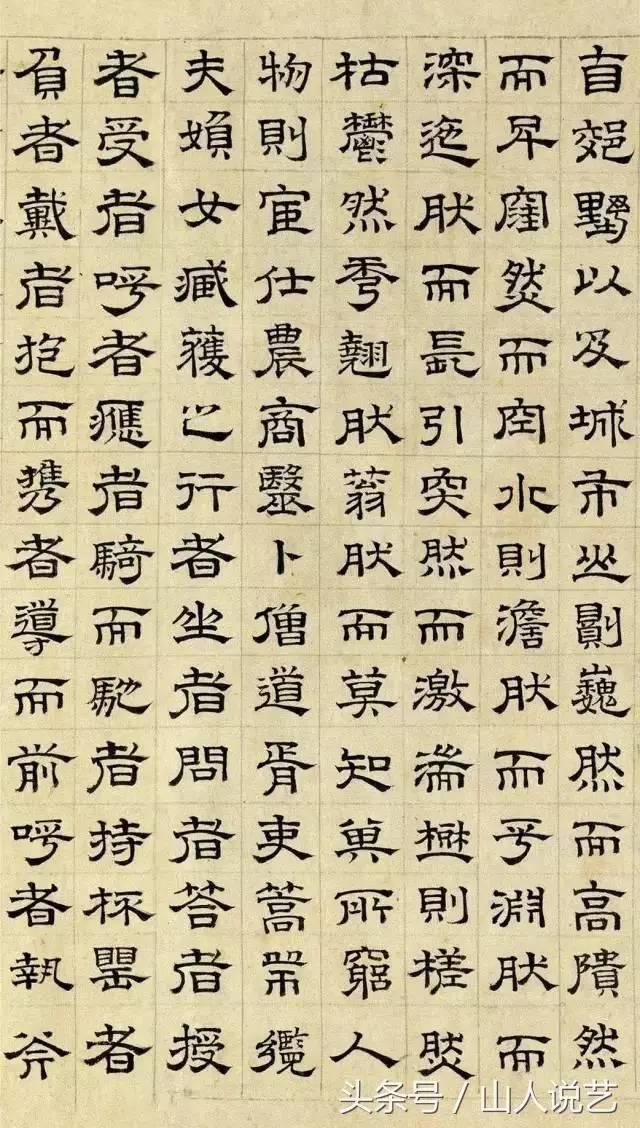 自郊野以及城市山則巍然而高隤然
而卑窪然而空水則澹然而平淵然而
深迤然而長引突然而激湍樹則槎然
枯鬱然秀翹然蓊然而莫知其所窮人
物則宦仕農商醫卜僧道胥吏篙師纜
夫婦女臧獲之行者坐者問者答者授
者受者呼者應者騎而馳者持杯罌者
負者戴者抱而攜者導而前呼者執斧
头条号 / 山人说艺